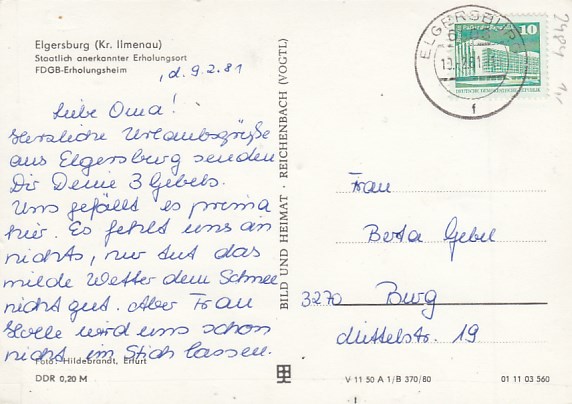 Elgersburg (Kr. Ilmenau)
Staatlich anerkannter Erholungsort
FDGB-Erholungsheim
, d. 9.2.81
Liebe Oma!
Herzliche Urlaubsgrüße
aus Elgersburg senden
Dir Deine 3 Gebels.
Uns gefällt es prima
hier. Es fehlt uns an
nichts, nur tut das
milde Wetter dem Schnee
nicht gut. Aber Frau
Holle wird uns schon
nicht im Stich lassen.
Foto: Hildebrandt, Erfurt
DDR 0,20 M
BILD UND HEIMAT · REICHENBACH (VOGTL)
ELGERSBURG
f
10
DEUTSCHE DEMOKRATISCHE REPUBLIK
Frau
Berta Gebel
3270 Burg
Mittelstr. 19
V 11 50 A 1/B 370/80
01 11 03 560